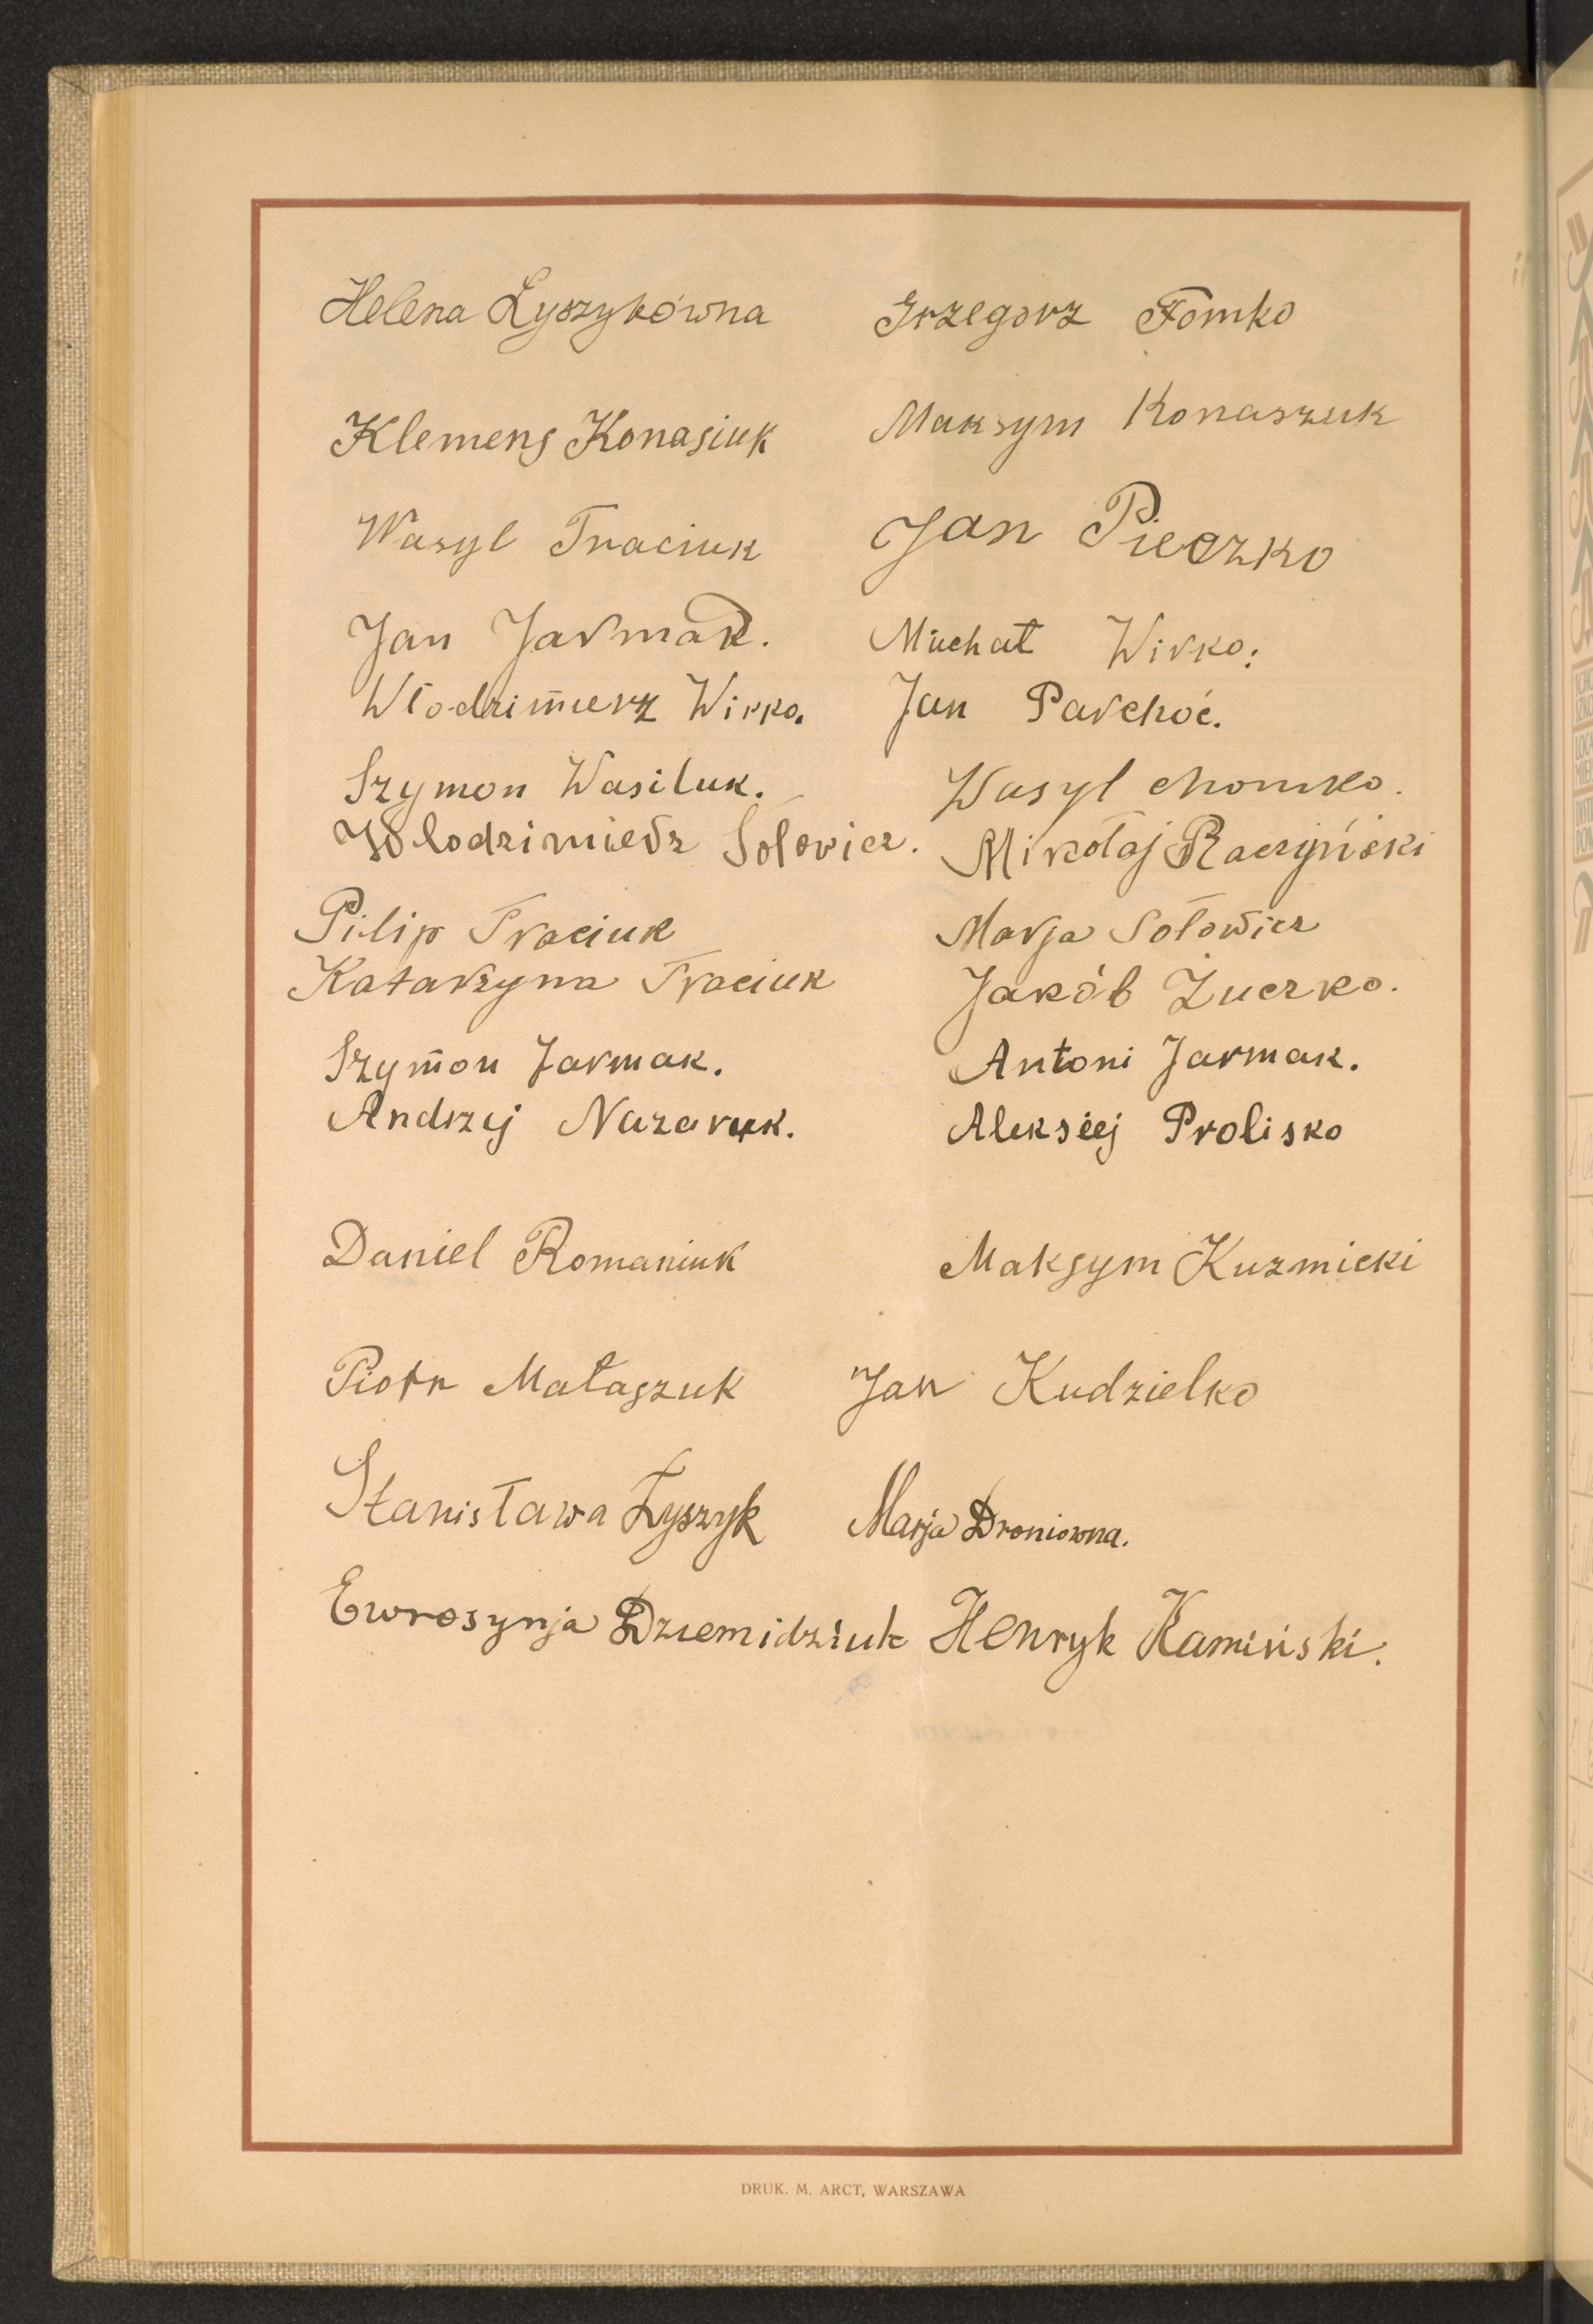 Helena Łyszykówna Grzegorz Fomko
Klemens Konasiuk Maksym Konaszuk
Wasyl Traciuk Jan Pieczko
Jan Jarmak. Michał Wirko.
Włodzimierz Wirko. Jan Parchoć.
Szymon Wasiluk. Wasyl Chomko.
Wlodzimierz Sołowicz. Mikołaj Raczyński
Pilip Traciuk Marja Sołowicz
Katarzyna Traciuk Jakób Żuczko.
Szymon Jarmak. Antoni Jarmak.
Andrzej Nazaruk. Aleksiej Prolisko
Daniel Romaniuk Maksym Kuzmicki
Piotr Małaszuk Jan Kudzielko
Stanisława Łyszyk Marja Droniowna.
Ewrosynja Dziemidziuk Henryk Kamiński.
DRUK. M. ARCT, WARSZAWA